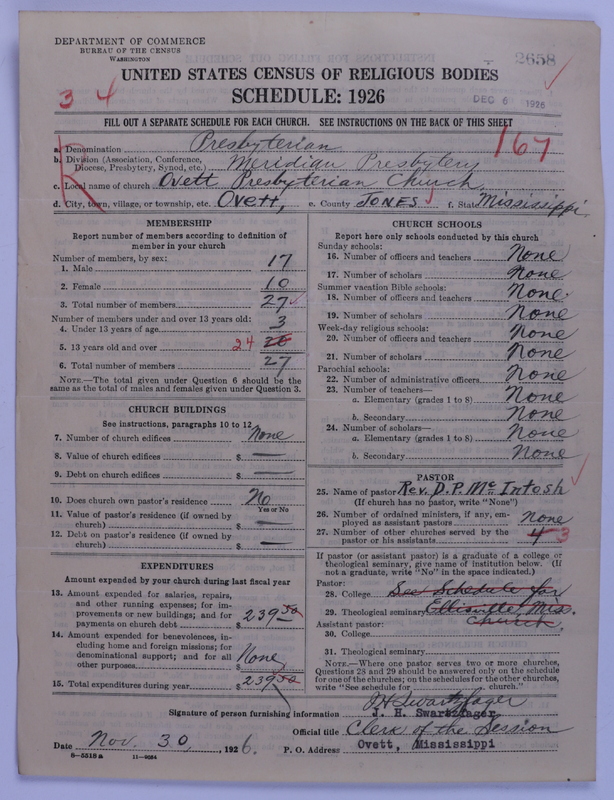 DEPARTMENT OF COMMERCE
BUREAU OF THE CENSUS
WASHINGTON
2658
UNITED STATES CENSUS OF RELIGIOUS BODIES
3 4
SCHEDULE: 1926
DEC 6 1926
FILL OUT A SEPARATE SCHEDULE FOR EACH CHURCH. SEE INSTRUCTIONS ON THE BACK OF THIS SHEET
R
167
a. Denomination Presbyterian
b. Division (Association, Conference, Diocese, Presbytery, Synod, etc.) Meridian Presbytery
c. Local name of church Ovett Presbyterian Church
d. City, town, village, or township, etc. Ovett, e. County JONES f. State Mississippi
MEMBERSHIP
Report number of members according to definition of
member in your church
Number of members, by sex:
1. Male 17
2. Female 10
3. Total number of members 27
Number of members under and over 13 years old:
4. Under 13 years of age 3
5. 13 years old and over 24
6. Total number of members 27
NOTE.—The total given under Question 6 should be
same as the total of males and females given under Question 3.
CHURCH BUILDINGS
See instructions, paragraphs 10 to 12
7. Number of church edifices None
8. Value of church edifices $ —
9. Debt on church edifices $ —
10. Does church own pastor's residence No
Yes or No
11. Value of pastor's residence (if owned by
church) $ —
12. Debt on pastor's residence (if owned by
church) $ —
EXPENDITURES
Amount expended by your church during last fiscal year
13. Amount expended for salaries, repairs,
and other running expenses; for im-
provements or new buildings; and for
payments on church debt $ 239 50
14. Amount expended for benevolences, in-
cluding home and foreign missions; for
denominational support; and for all
other purposes $ None
15. Total expenditures during year $ 239 50
CHURCH SCHOOLS
Report here only schools conducted by this church
Sunday schools:
16. Number of officers and teachers None
17. Number of scholars None
Summer vacation Bible schools:
18. Number of officers and teachers None
19. Number of scholars None
Week-day religious schools:
20. Number of officers and teachers None
21. Number of scholars None
Parochial schools:
22. Number of administrative officers None
23. Number of teachers—
a. Elementary (grades 1 to 8) None
b. Secondary None
24. Number of scholars—
a. Elementary (grades 1 to 8) None
b. Secondary None
PASTOR
25. Name of pastor Rev. D. P. McIntosh
(If church has no pastor, write "None")
26. Number of ordained ministers, if any, em-
ployed as assistant pastors None
27. Number of other churches served by the
pastor or his assistants 4 3
If pastor (or assistant pastor) is a graduate of a college or
theological seminary, give name of institution below. (If
not a graduate, write "No" in the space indicated.)
Pastor:
28. College See Schedule for
29. Theological seminary Ellisville, Miss.
Assistant pastor: Church
30. College
31. Theological seminary
NOTE.—Where one pastor serves two or more churches,
Questions 28 and 29 should be answered only on the schedule
for one of the churches; on the schedules for the other churches,
write "See schedule for church."
Signature of person furnishing information J H Swartzfager
J. H. Swartzfager
Official title Clerk of the Session
Date Nov. 30, 1926.
P. O. Address Ovett, Mississippi
8—5518 a 11—9084